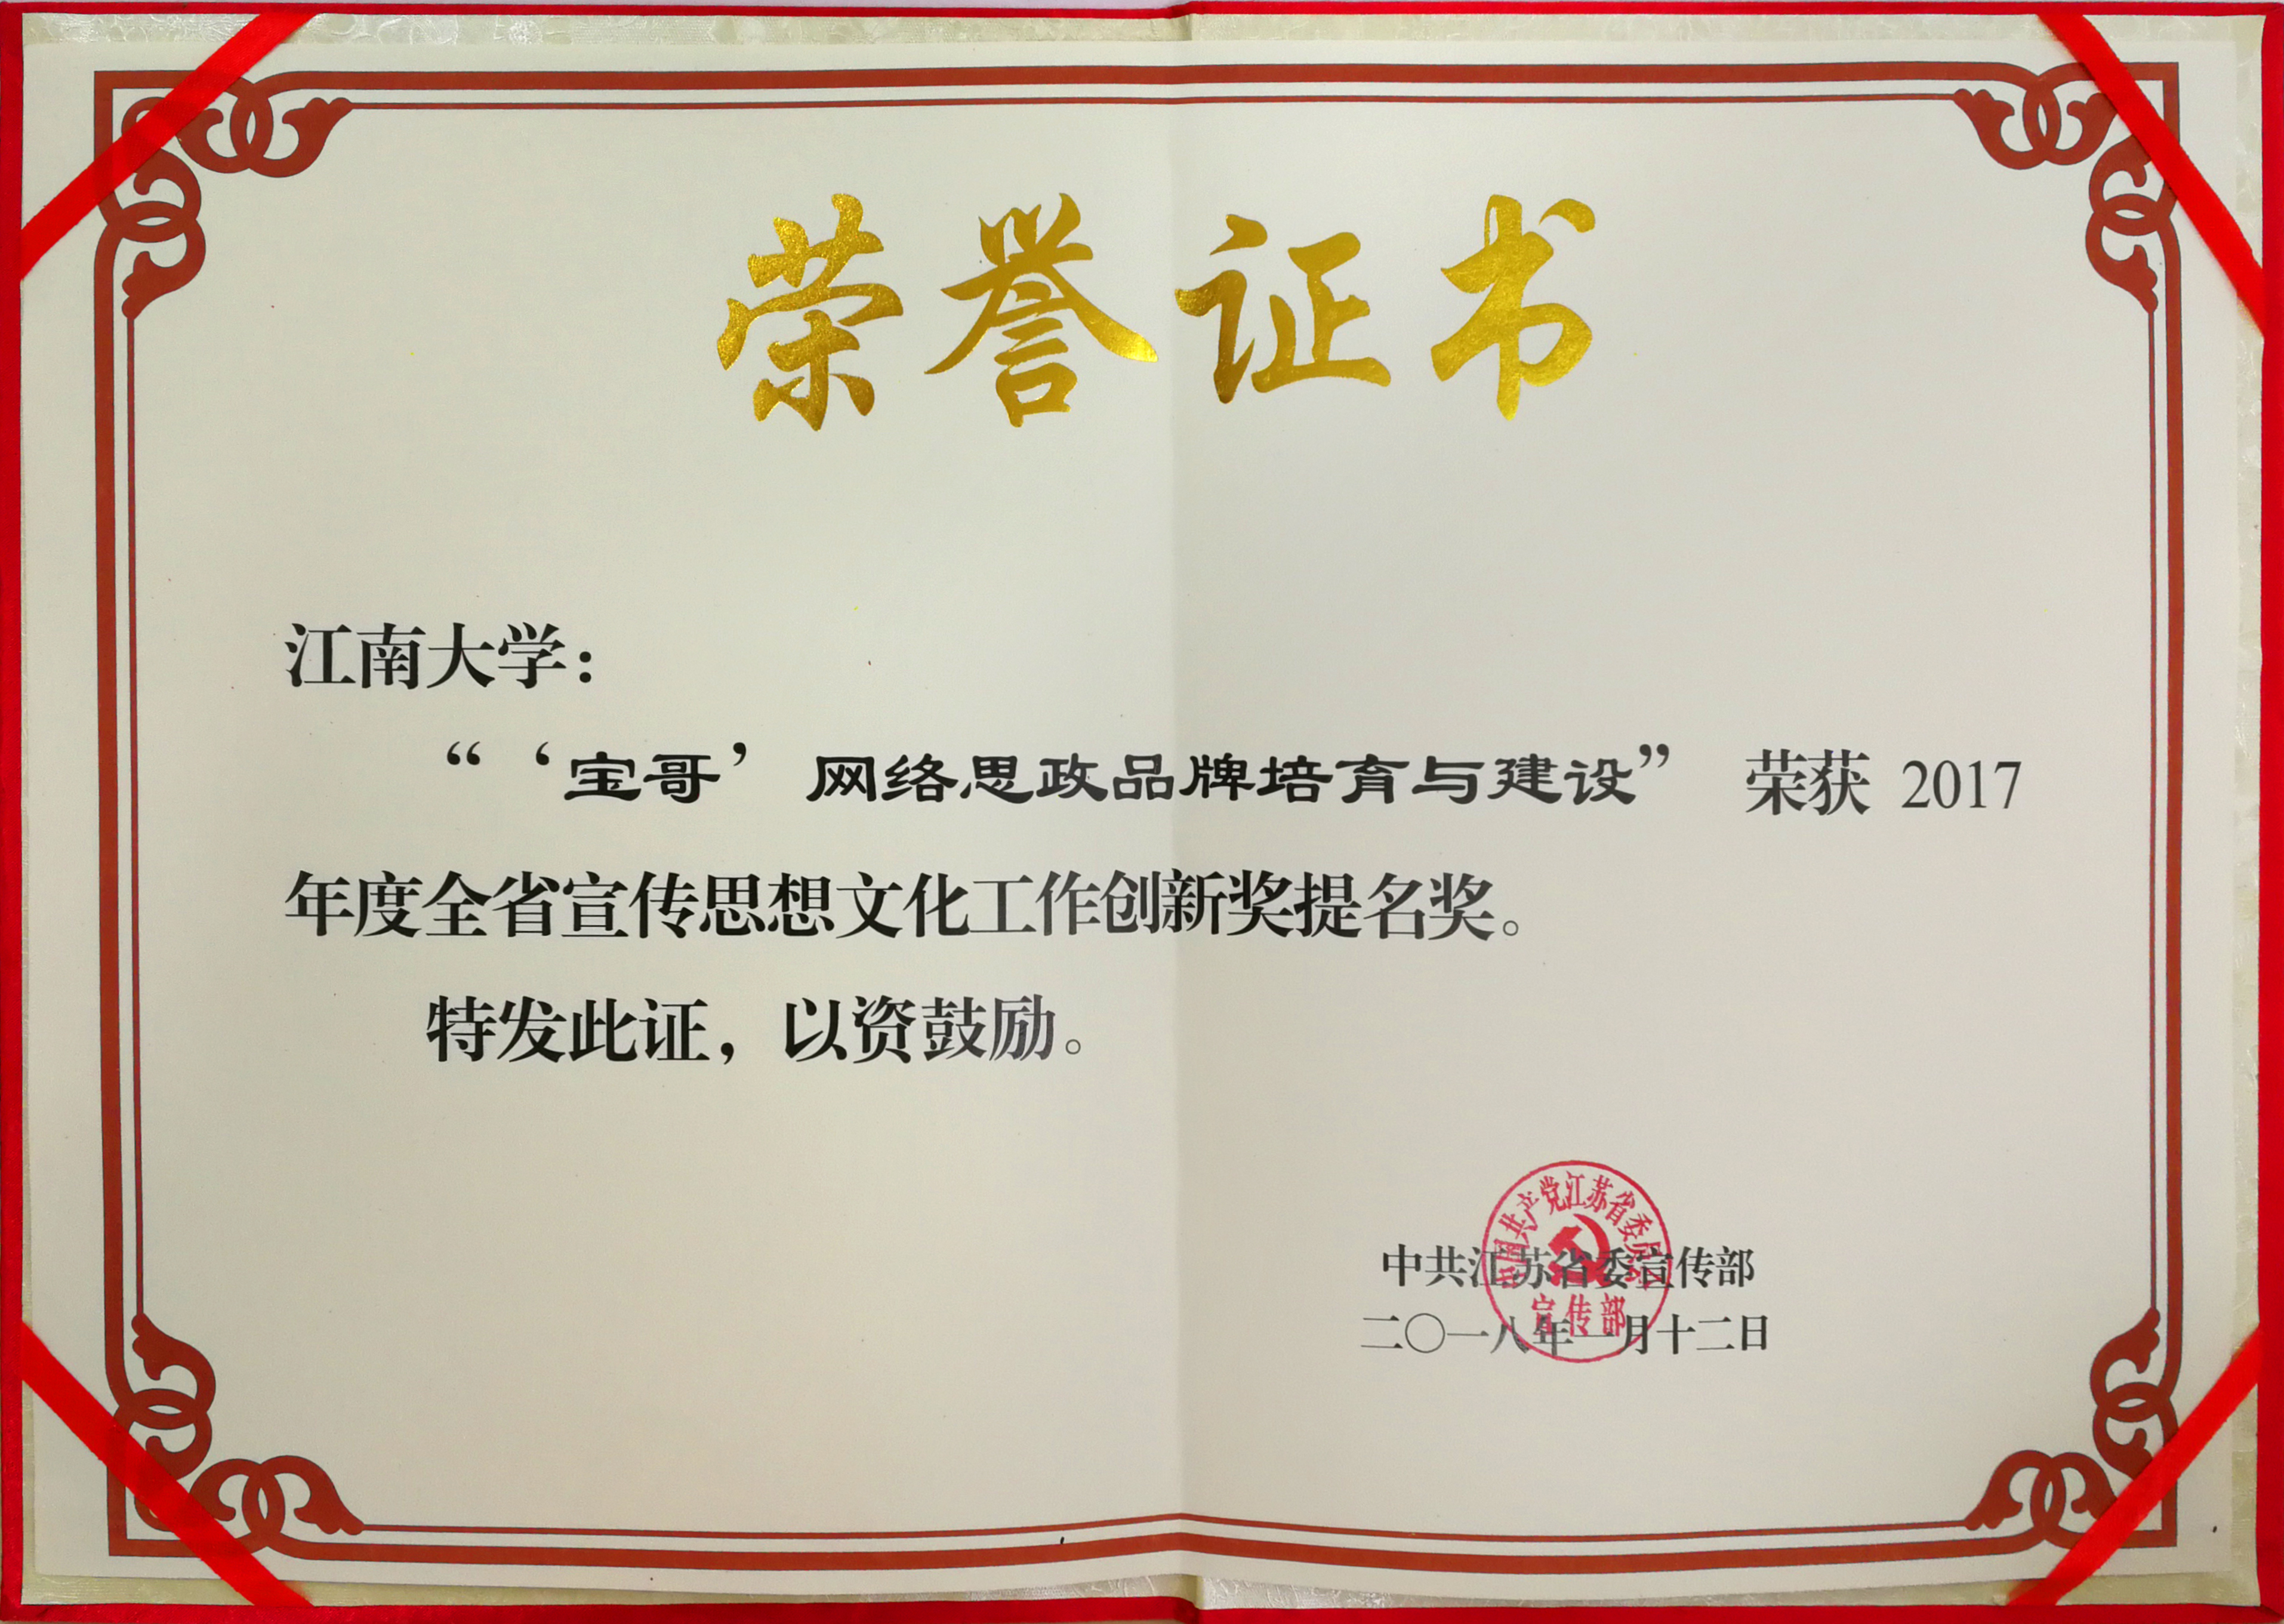 荣誉证书
江南大学：
“‘宝哥’网络思政品牌培育与建设” 荣获 2017
年度全省宣传思想文化工作创新奖提名奖。
特发此证，以资鼓励。
中国共产党江苏省委员会
宣传部
中共江苏省委宣传部
二〇一八年一月十二日